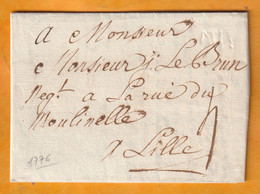 A Monsieur
Monsieur J: Le Brun
Negt a La rüe du
Moulinelle
a Lille
1776